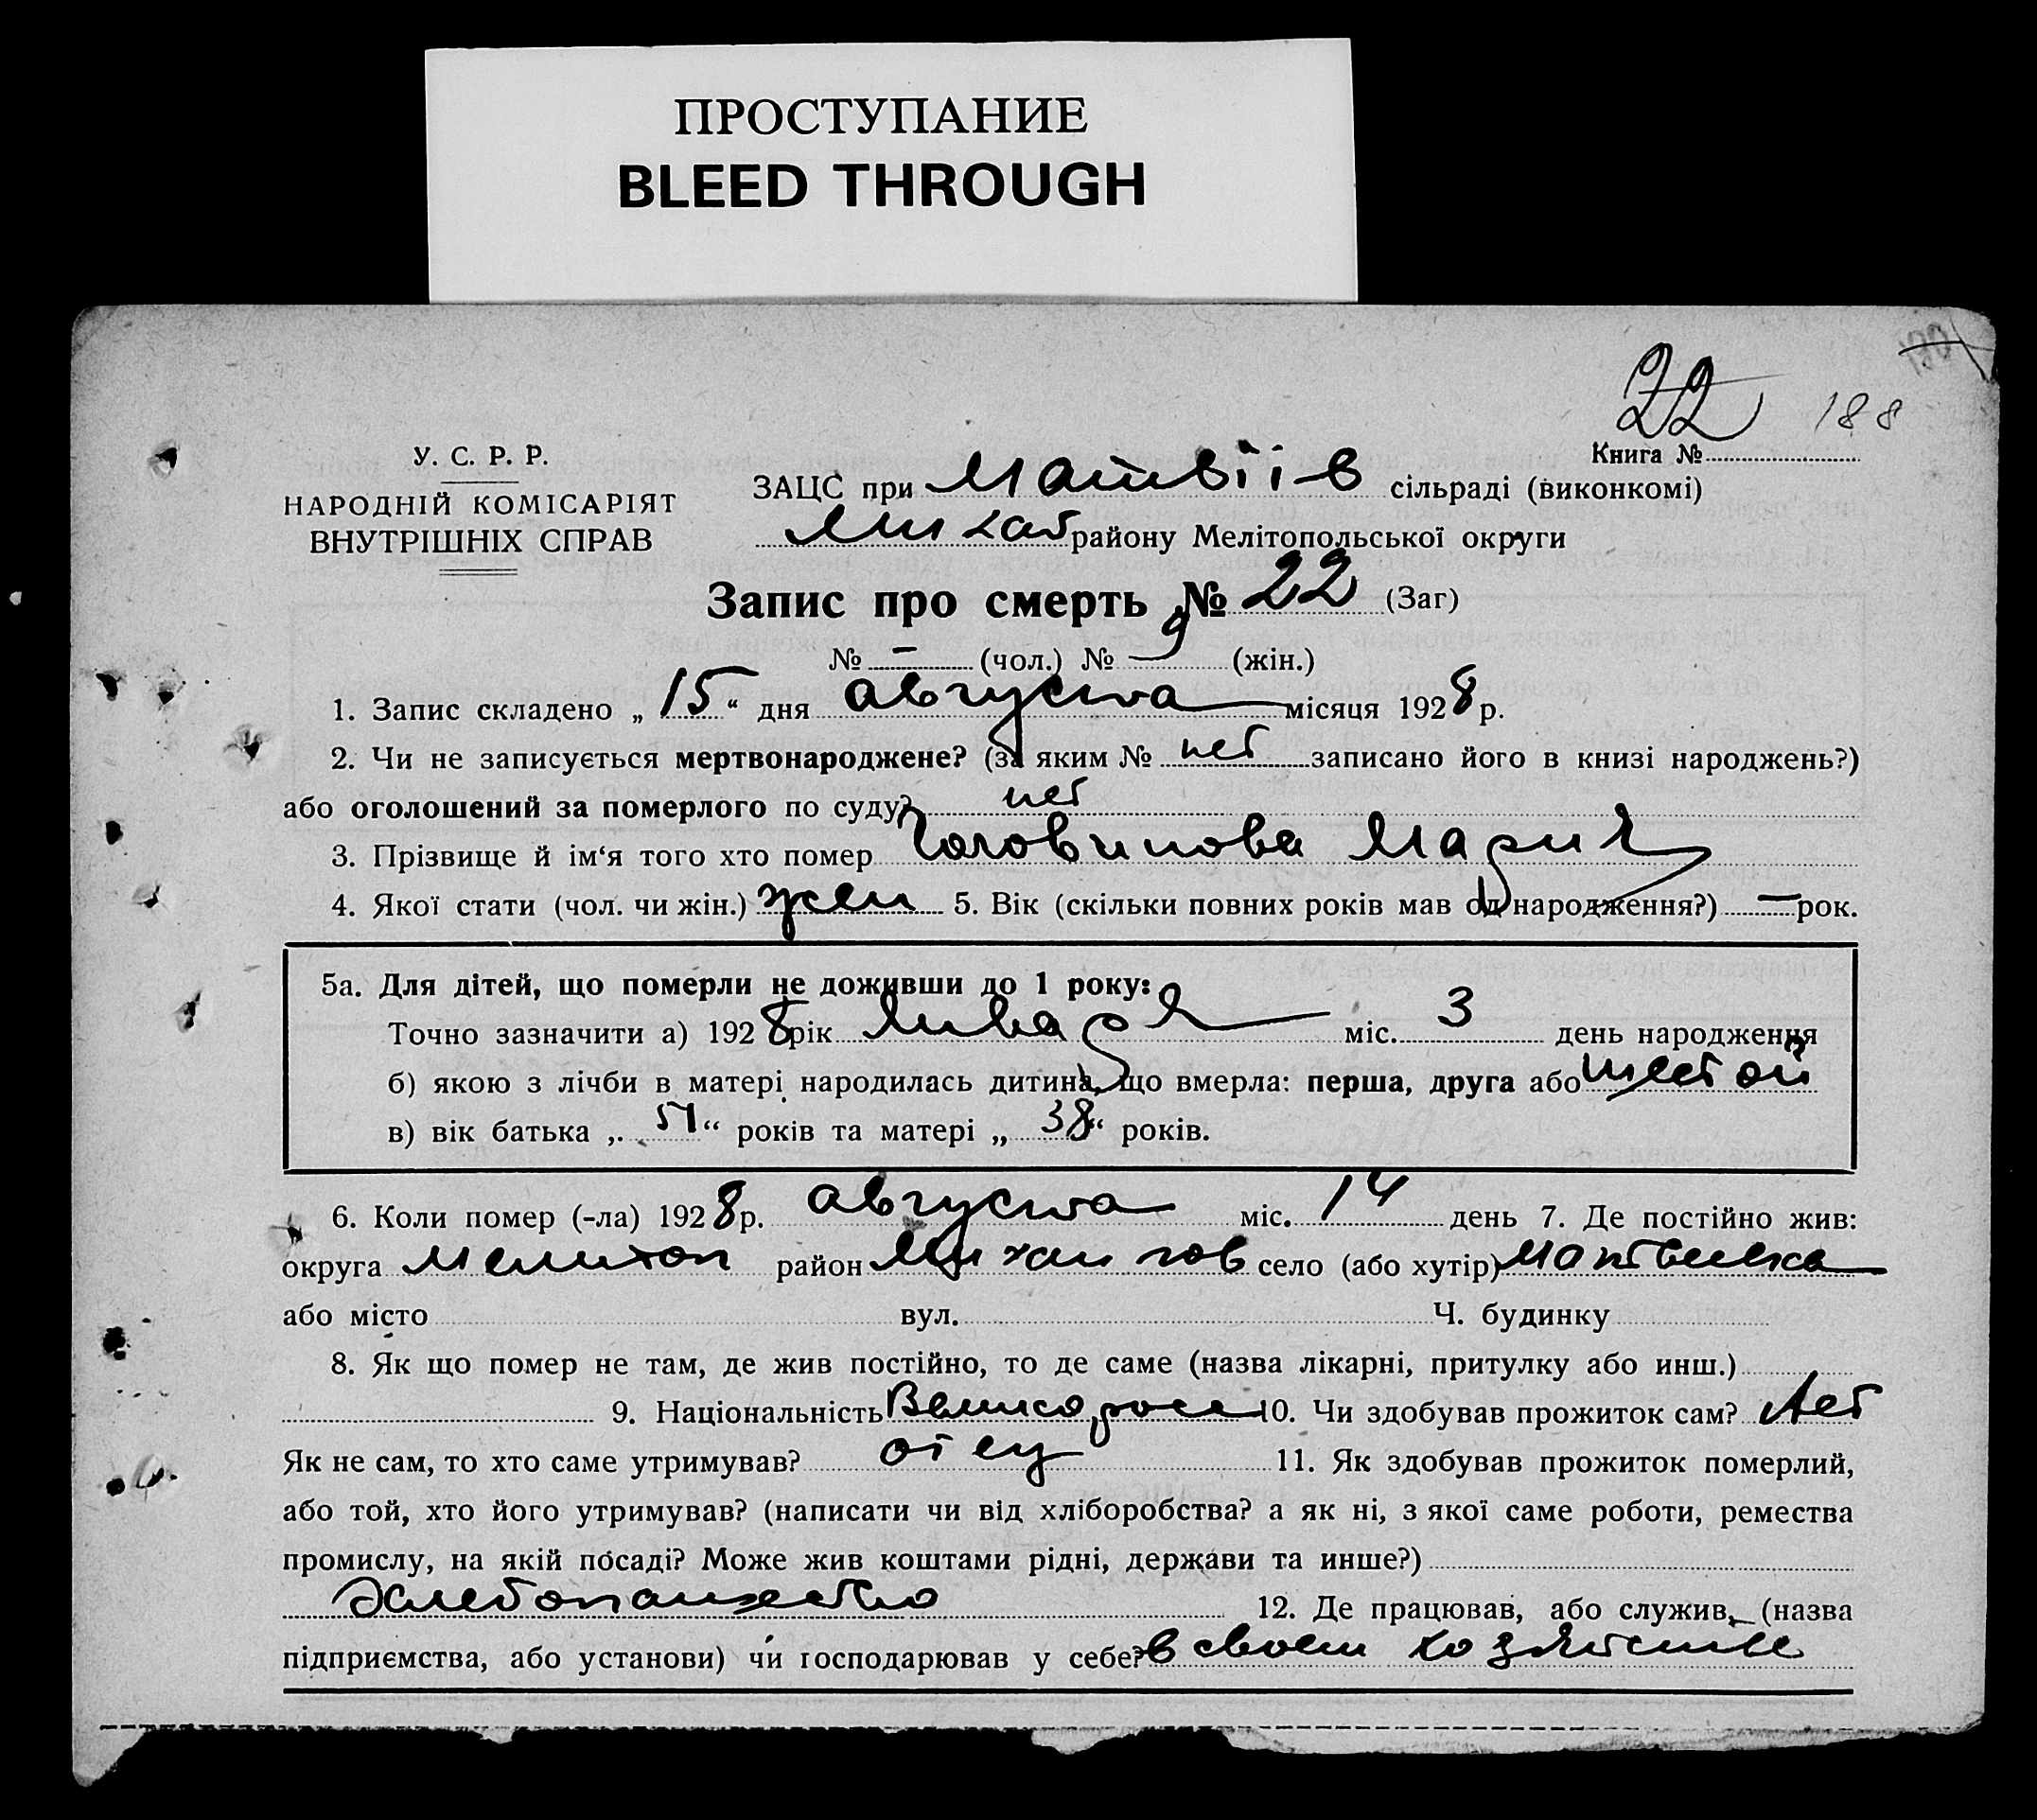 ПРОСТУПАНИЕ
BLEED THROUGH
22 188
Книга №
У. С. Р. Р.
НАРОДНІЙ КОМІСАРІЯТ
ВНУТРІШНІХ СПРАВ
ЗАЦС при Матвіів сільраді (виконкомі)
Михай району Мелітопольської округи
Запис про смерть № 22 (Заг)
№ – (чол.) № 9 (жін.)
1. Запис складено „ 15 “ дня августа місяця 1928 р.
2. Чи не записується мертвонароджене? (за яким № нет записано його в книзі народжень?)
або оголошений за померлого по суду? нет
3. Прізвище й ім‘я того хто помер Головинова Мария
4. Якої стати (чол. чи жін.) жен 5. Вік (скільки повних років мав од народження?) — рок.
5а. Для дітей, що померли не доживши до 1 року:
Точно зазначити а) 1928 рік января міс. 3 день народження
б) якою з лічби в матері народилась дитина, що вмерла: перша, друга або шестой
в) вік батька „ 51 “ років та матері „ 38 “ років.
6. Коли помер (-ла) 1928 р. августа міс. 14 день 7. Де постійно жив:
округа Мелитоп район Михайлов село (або хутір) Матвеевка
або місто вул. Ч. будинку
8. Як що помер не там, де жив постійно, то де саме (назва лікарні, притулку або инш.)
9. Національність Великоросс 10. Чи здобував прожиток сам? Нет
Як не сам, то хто саме утримував? отец 11. Як здобував прожиток померлий,
або той, хто його утримував? (написати чи від хліборобства? а як ні, з якої саме роботи, ремества
промислу, на якій посаді? Може жив коштами рідні, держави та инше?)
Хлебопашество 12. Де працював, або служив, (назва
підприємства, або установи) чи господарював у себе? в своем хозяйстве